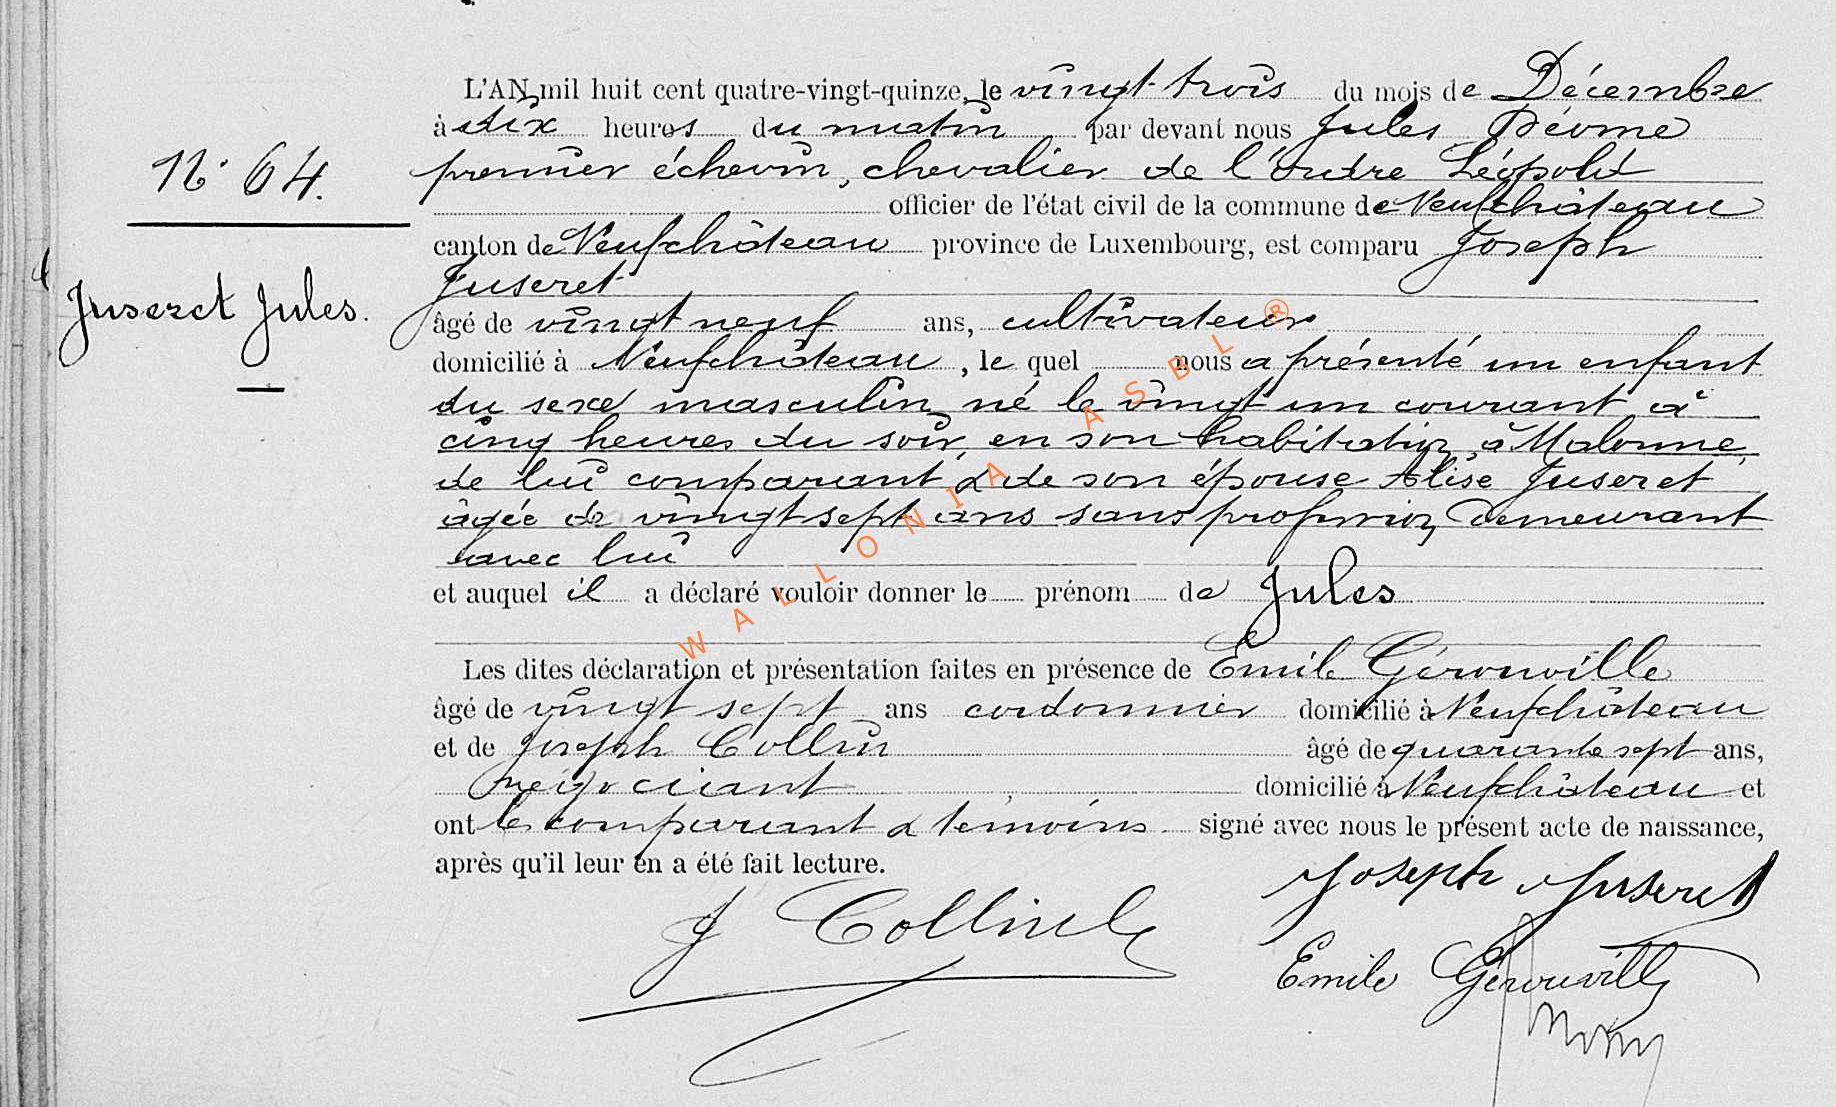 L'AN mil huit cent quatre-vingt-quinze, le vingt trois du mois de Décembre
à dix heures du matin par devant nous Jules
N° 64.
premier échevin, chevalier de l'Ordre Léopold
officier de l'état civil de la commune de Neufchâteau
canton de Neufchâteau province de Luxembourg, est comparu Joseph
Juseret
Juseret Jules.
âgé de vingt neuf ans, cultivateur
domicilié à Neufchâteau, le quel nous a présenté un enfant
du sexe masculin né le vingt un courant à
cinq heures du soir, en son habitation, à Malonne,
de lui comparant & de son épouse Alise Juseret
âgée de vingt sept ans sans profession, demeurant
avec lui
et auquel il a déclaré vouloir donner le prénom de Jules
Les dites déclaration et présentation faites en présence de Emile Gérouville
âgé de vingt sept ans cordonnier domicilié à Neufchâteau
et de Joseph Collin âgé de quarante sept ans,
négociant domicilié à Neufchâteau et
ont le comparant & témoins signé avec nous le présent acte de naissance,
après qu'il leur en a été fait lecture.
Joseph Juseret
J Collin
Emile Gérouville
WALLONIA ASBL ®